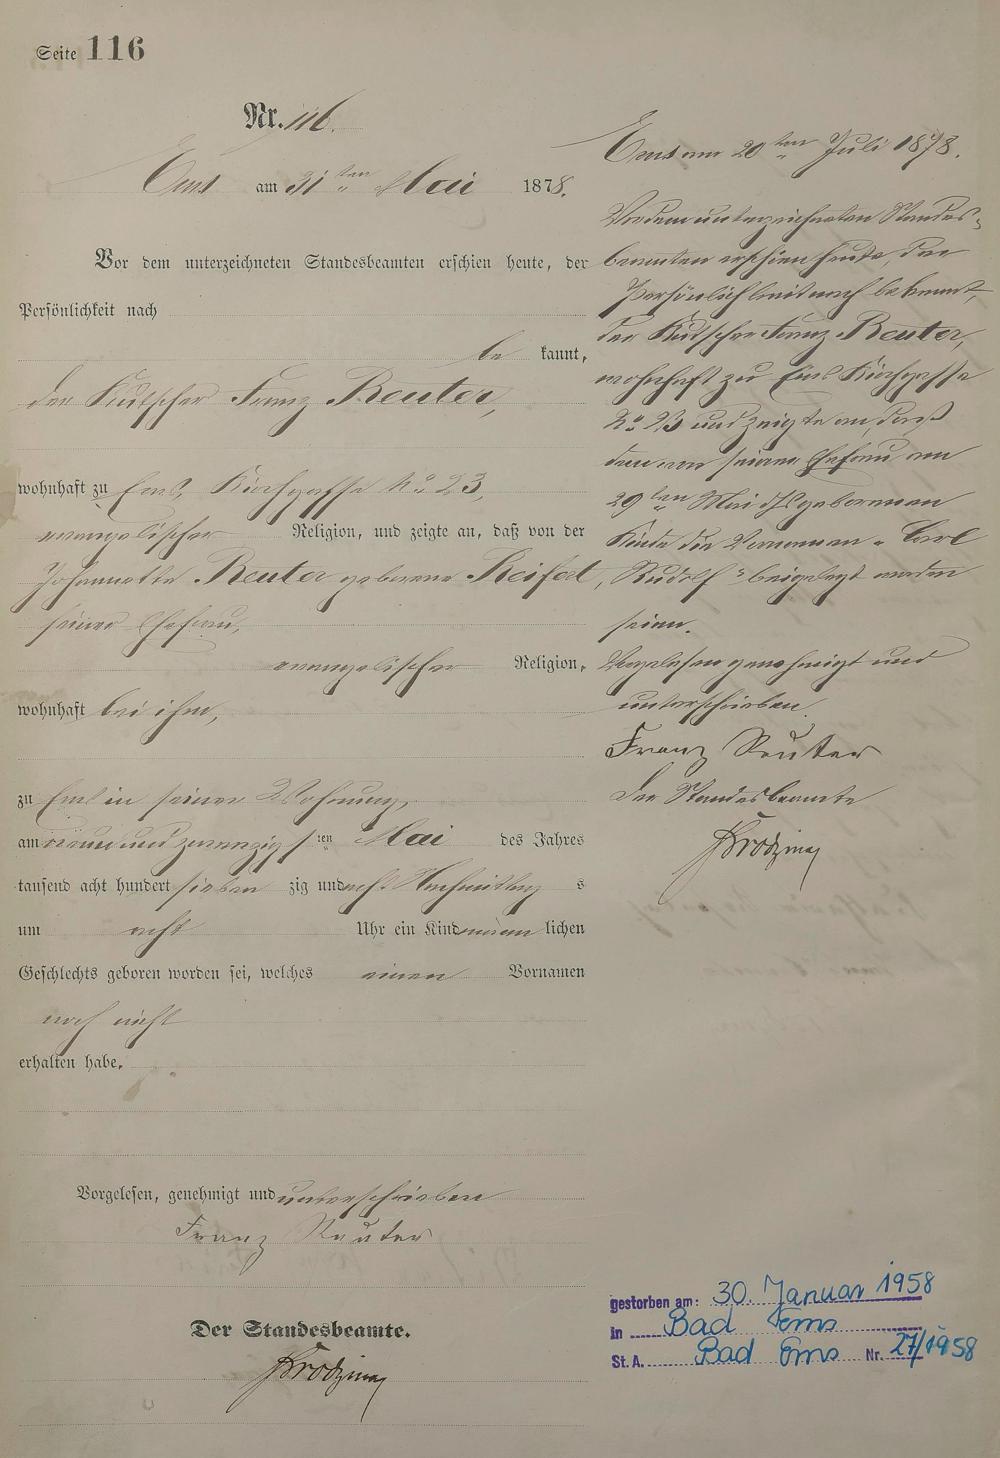 Seite 116
Nr. 116.
Ems am 31ten Mai 1878.
Vor dem unterzeichneten Standesbeamten erschien heute, der
Persönlichkeit nach
be kannt,
der Kutscher Franz Reuter,
wohnhaft zu Ems, Kirchgasse No 23,
evangelischer Religion, und zeigte an, daß von der
Johannette Reuter geborene Seifert,
seiner Ehefrau,
evangelischer Religion,
wohnhaft bei ihm,
zu Ems in seiner Wohnung,
am neun und zwanzigsten Mai des Jahres
tausend acht hundert sieben zig und acht Nachmittag s
um acht Uhr ein Kind männ lichen
Geschlechts geboren worden sei, welches einen Vornamen
noch nicht
erhalten habe.
Vorgelesen, genehmigt und unterschrieben
Franz Reuter
Der Standesbeamte.
Ems am 20ten Juli 1878.
Vor dem unterzeichneten Standes-
beamten erschien heute, der
Persönlichkeit nach bekannt,
der Kutscher Franz Reuter,
wohnhaft zu Ems Kirchgasse
No 23 und zeigte an, daß
dem von seiner Ehefrau am
29ten Mai geborenen
Kinde die Vornamen "Carl
Rudolf" beigelegt worden
seien.
Vorgelesen genehmigt und
unterschrieben
Franz Reuter
Der Standesbeamte
gestorben am: 30. Januar 1958
in Bad Ems
St. A. Bad Ems Nr. 27/1958